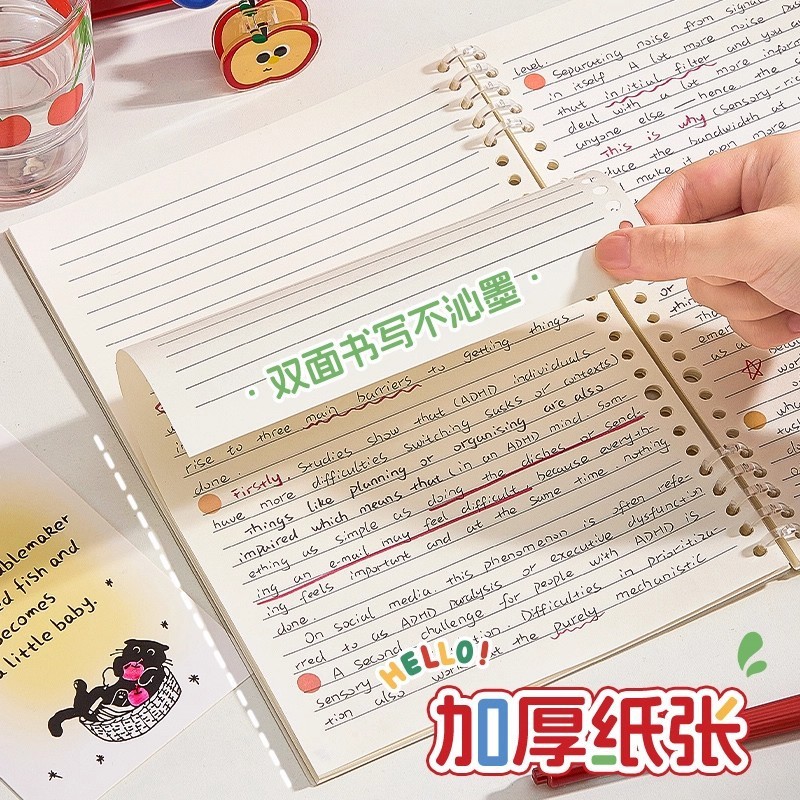 level.
Separating noise from signal
in itself A lot more noise
that in/itial filter and you a
deal with a lot more inform
anyone else — hence the s
This is why (Sensory-ri
duce the bandwidth at
make it even more
双面书写不沁墨
to getting things
rise to three main barriers
done. Firstly, studies show that (ADHD individuals
have more difficulties switching tasks or contexts)
Things like planning or organising are also
impaired which means that (in an ADHD mind som-
ething as simple as doing the dishes or send-
ing an e-mail may feel difficult because everyth-
ing feels important and at the same time nothing
done.
On social media, this phenomenon is often refe-
rred to as ADHD paralysis or executive dysfunction
A second challenge for people with ADHD is
sensory Difficulties in prioritiza-
tion also work at the purely mechanistic
or
thin
Tha
us a
whe
task
or
ublemaker
ed fish and
becomes
a little baby.
HELLO!
加厚纸张